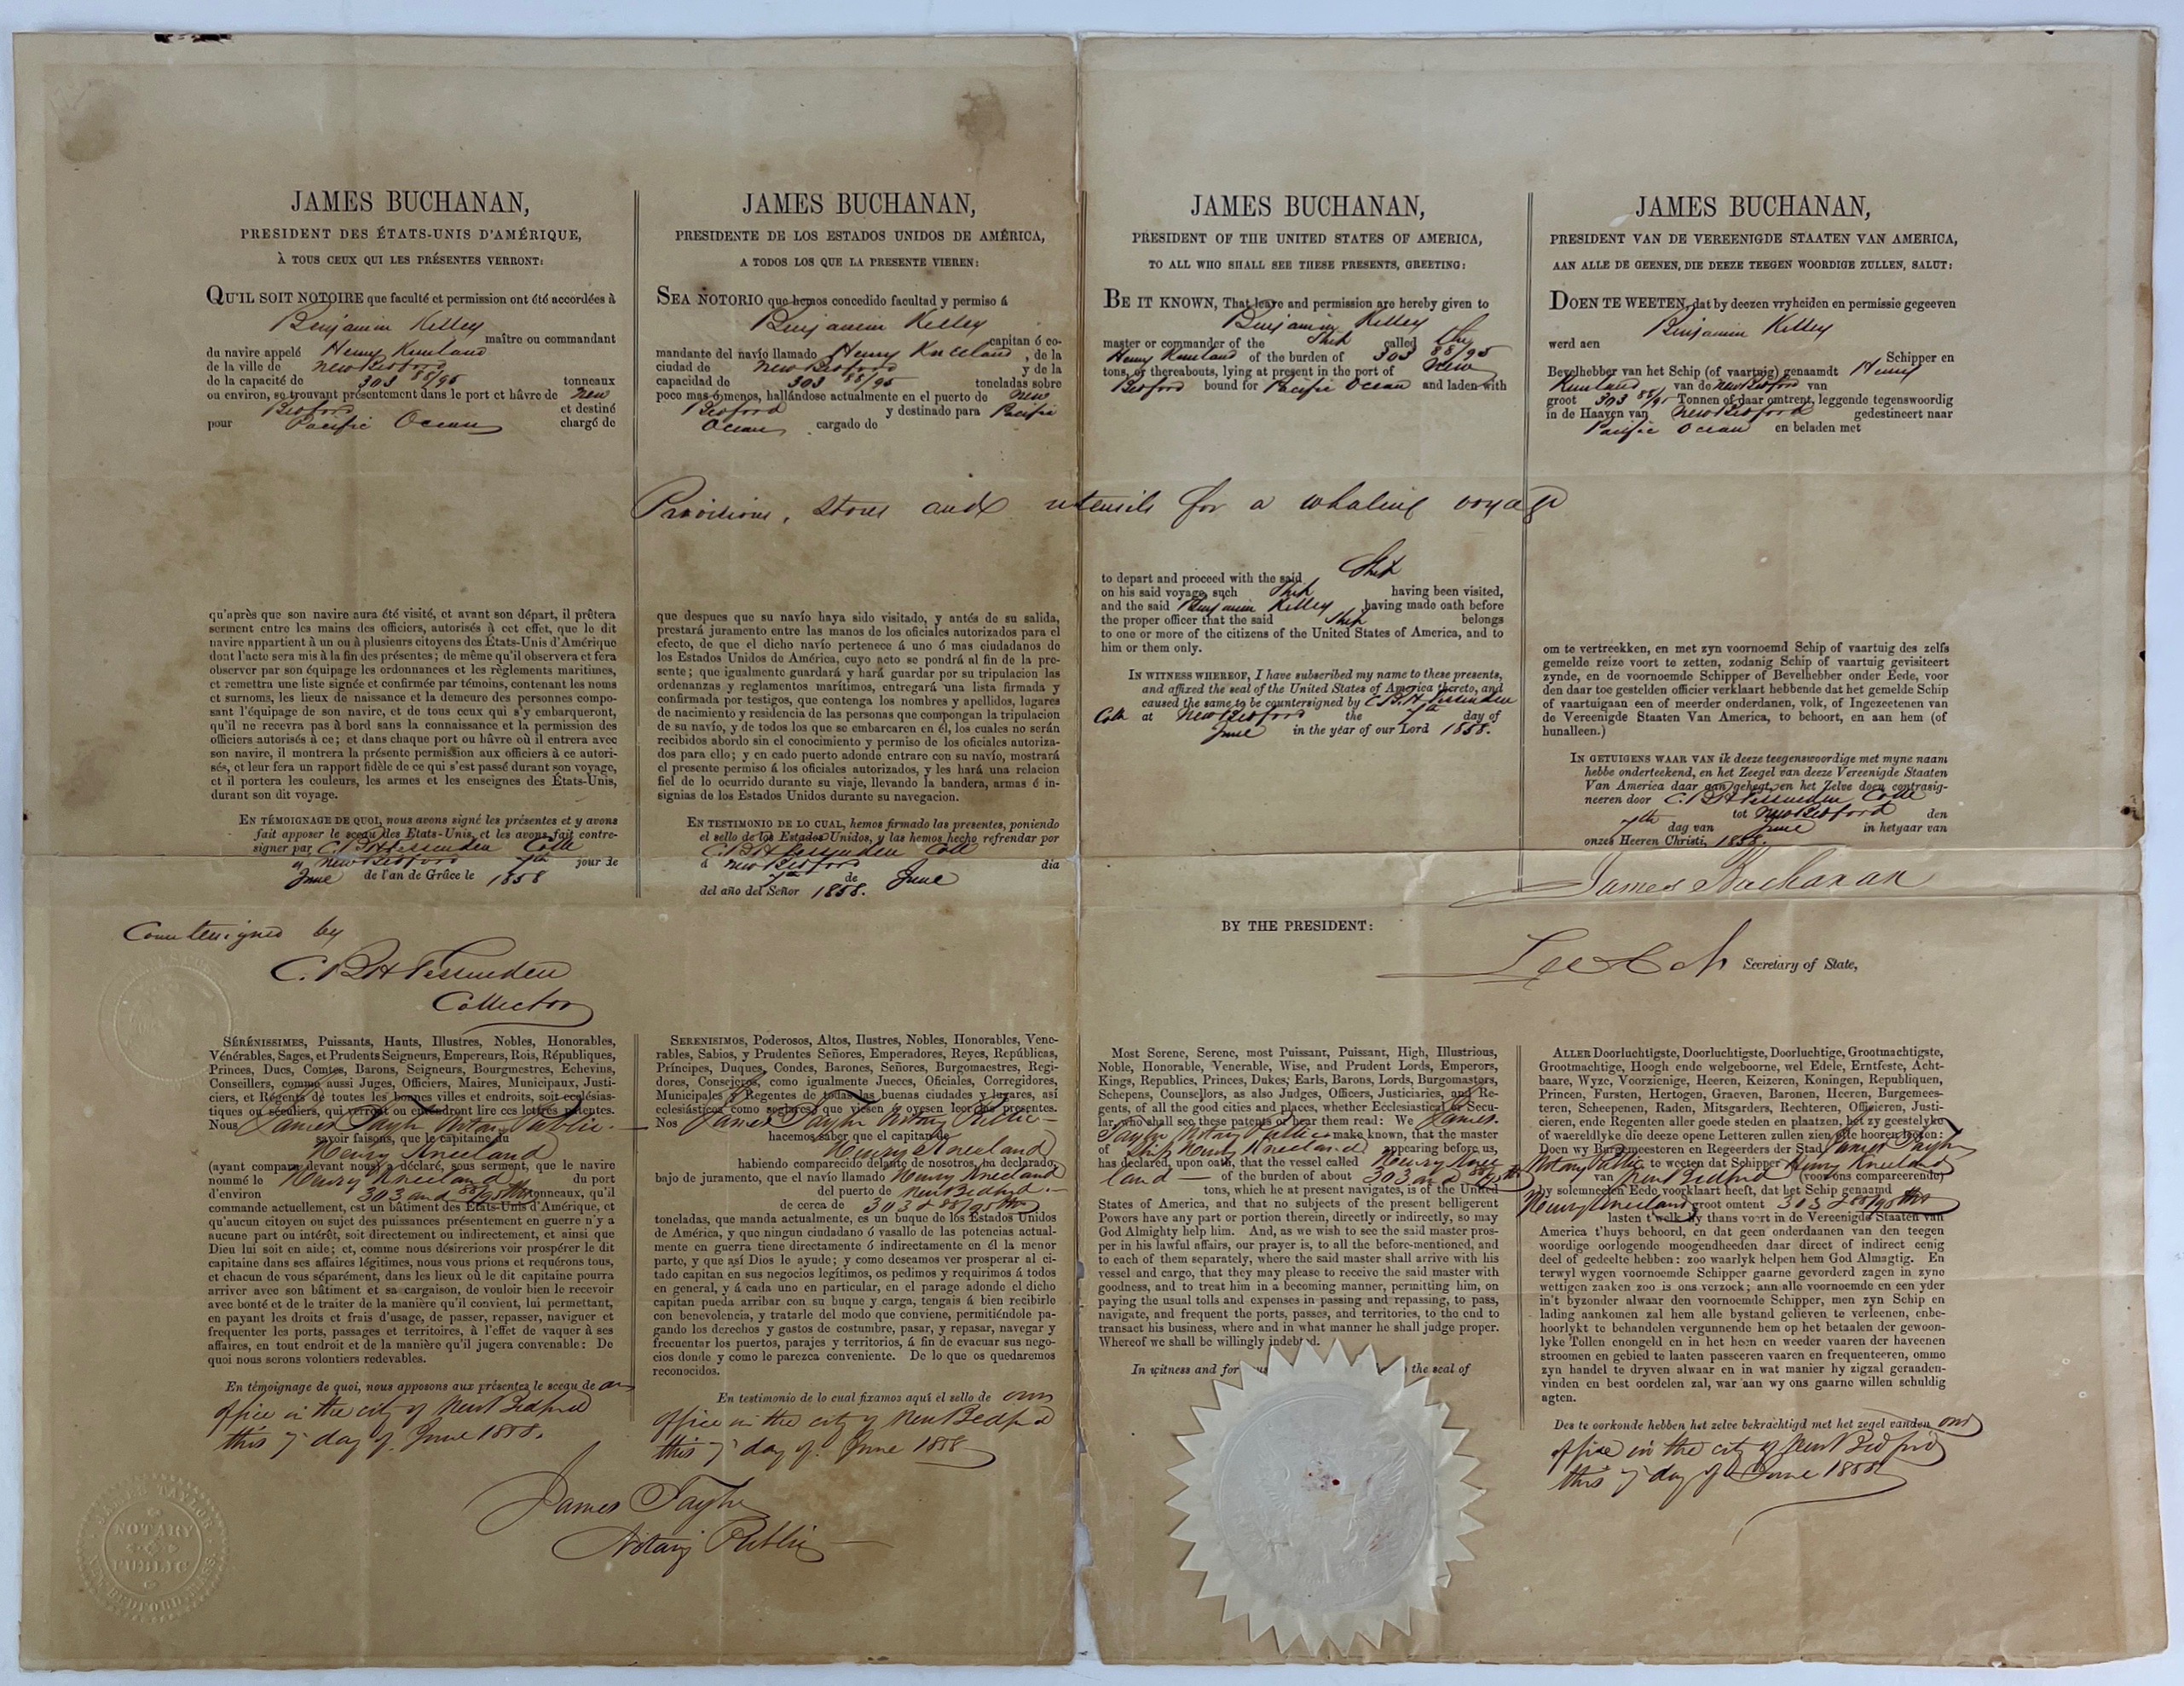 JAMES BUCHANAN,
PRESIDENT DES ÉTATS-UNIS D'AMÉRIQUE,
À TOUS CEUX QUI LES PRÉSENTES VERRONT:
QU'IL SOIT NOTOIRE que faculté et permission ont été accordées à
Benjamin Kelley
maître ou commandant
du navire appelé Henry Kneeland
de la ville de New Bedford
de la capacité de 303 88/95 tonneaux
ou environ, se trouvant présentement dans le port et hâvre de New
Bedford et destiné
pour Pacific Ocean chargé de
JAMES BUCHANAN,
PRESIDENTE DE LOS ESTADOS UNIDOS DE AMÉRICA,
A TODOS LOS QUE LA PRESENTE VIEREN:
SEA NOTORIO que hemos concedido facultad y permiso á
Benjamin Kelley
capitan ó co-
mandante del navío llamado Henry Kneeland, de la
ciudad de New Bedford y de la
capacidad de 303 88/95 toneladas sobre
poco mas ó menos, hallándose actualmente en el puerto de New
Bedford y destinado para Pacific
Ocean cargado de
JAMES BUCHANAN,
PRESIDENT OF THE UNITED STATES OF AMERICA,
TO ALL WHO SHALL SEE THESE PRESENTS, GREETING:
BE IT KNOWN, That leave and permission are hereby given to
Benjamin Kelley
master or commander of the Ship called the
Henry Kneeland of the burden of 303 88/95
tons, or thereabouts, lying at present in the port of New
Bedford bound for Pacific Ocean and laden with
JAMES BUCHANAN,
PRESIDENT VAN DE VEREENIGDE STAATEN VAN AMERICA,
AAN ALLE DE GEENEN, DIE DEEZE TEEGEN WOORDIGE ZULLEN, SALUT:
DOEN TE WEETEN, dat by deezen vryheiden en permissie gegeeven
Benjamin Kelley
werd aen
Schipper en
Bevelhebber van het Schip (of vaartuig) genaamdt Henry
Kneeland van de New Bedford van
groot 303 88/95 Tonnen of daar omtrent, leggende tegenswoordig
in de Haaven van New Bedford gedestineert naar
Pacific Ocean en beladen met
Provisions, stores and utensils for a whaling voyage
qu'après que son navire aura été visité, et avant son départ, il prêtera
serment entre les mains des officiers, autorisés à cet effet, que le dit
navire appartient à un ou à plusieurs citoyens des États-Unis d'Amérique
dont l'acte sera mis à la fin des présentes; de même qu'il observera et fera
observer par son équipage les ordonnances et les règlements maritimes,
et remettra une liste signée et confirmée par témoins, contenant les noms
et surnoms, les lieux de naissance et la demeure des personnes compo-
sant l'équipage de son navire, et de tous ceux qui s'y embarqueront,
qu'il ne recevra pas à bord sans la connaissance et la permission des
officiers autorisés à ce; et dans chaque port ou hâvre où il entrera avec
son navire, il montrera la présente permission aux officiers à ce autori-
sés, et leur fera un rapport fidèle de ce qui s'est passé durant son voyage,
et il portera les couleurs, les armes et les enseignes des États-Unis,
durant son dit voyage.
EN TÉMOIGNAGE DE QUOI, nous avons signé les présentes et y avons
fait apposer le sceau des Etats-Unis, et les avons fait contre-
signer par C. B. H. Fessenden Colle
a New Bedford 7th jour de
June de l'an de Grâce le 1858
que despues que su navío haya sido visitado, y antés de su salida,
prestará juramento entre las manos de los oficiales autorizados para el
efecto, de que el dicho navío pertenece á uno ó mas ciudadanos de
los Estados Unidos de América, cuyo acto se pondrá al fin de la pre-
sente; que igualmente guardará y hará guardar por su tripulacion las
ordenanzas y reglamentos marítimos, entregará una lista firmada y
confirmada por testigos, que contenga los nombres y apellidos, lugares
de nacimiento y residencia de las personas que compongan la tripulacion
de su navío, y de todos los que se embarcaren en él, los cuales no serán
recibidos abordo sin el conocimiento y permiso de los oficiales autoriza-
dos para ello; y en cado puerto adonde entrare con su navío, mostrará
el presente permiso á los oficiales autorizados, y les hará una relacion
fiel de lo ocurrido durante su viaje, llevando la bandera, armas é in-
signias de los Estados Unidos durante su navegacion.
EN TESTIMONIO DE LO CUAL, hemos firmado las presentes, poniendo
el sello de los Estados Unidos, y las hemos hecho refrendar por
C. B. H. Fessenden Coll
á New Bedford dia
7th de June
del año del Señor 1858.
to depart and proceed with the said Ship
on his said voyage, such Ship having been visited,
and the said Benjamin Kelley having made oath before
the proper officer that the said Ship belongs
to one or more of the citizens of the United States of America, and to
him or them only.
IN WITNESS WHEREOF, I have subscribed my name to these presents,
and affixed the seal of the United States of America thereto, and
caused the same to be countersigned by C. B. H. Fessenden
Colle at New Bedford the 7th day of
June in the year of our Lord 1858.
om te vertreekken, en met zyn voornoemd Schip of vaartuig des zelfs
gemelde reize voort te zetten, zodanig Schip of vaartuig gevisiteert
zynde, en de voornoemde Schipper of Bevelhebber onder Eede, voor
den daar toe gestelden officier verklaart hebbende dat het gemelde Schip
of vaartuigaan een of meerder onderdanen, volk, of Ingezeetenen van
de Vereenigde Staaten Van America, to behoort, en aan hem (of
hunalleen.)
IN GETUIGENS WAAR VAN ik deeze teegenswoordige met myne naam
hebbe onderteekend, en het Zeegel van deeze Vereenigde Staaten
Van America daar aan gehegt, en het Zelve doen contrasig-
neeren door C. B. H. Fessenden Colle
tot New Bedford den
7th dag van June in hetyaar van
onzes Heeren Christi, 1858.
James Buchanan
BY THE PRESIDENT:
Secretary of State,
Countersigned by
C. B. H. Fessenden
Collector
SÉRÉNISSIMES, Puissants, Hauts, Illustres, Nobles, Honorables,
Vénérables, Sages, et Prudents Seigneurs, Empereurs, Rois, Républiques,
Princes, Ducs, Comtes, Barons, Seigneurs, Bourgmestres, Echevins,
Conseillers, comme aussi Juges, Officiers, Maires, Municipaux, Justi-
ciers, et Régents de toutes les bonnes villes et endroits, soit ecclésias-
tiques ou séculiers, qui verront ou entendront lire ces lettres patentes.
Nous James Taylor Notary Public.
savoir faisons, que le capitaine du
Henry Kneeland
(ayant comparu devant nous) a déclaré, sous serment, que le navire
nommé le Henry Kneeland du port
d'environ 303 and 88/95ths tonneaux, qu'il
commande actuellement, est un bâtiment des États-Unis d'Amérique, et
qu'aucun citoyen ou sujet des puissances présentement en guerre n'y a
aucune part ou intérêt, soit directement ou indirectement, et ainsi que
Dieu lui soit en aide; et, comme nous désirerions voir prospérer le dit
capitaine dans ses affaires légitimes, nous vous prions et requérons tous,
et chacun de vous séparément, dans les lieux où le dit capitaine pourra
arriver avec son bâtiment et sa cargaison, de vouloir bien le recevoir
avec bonté et de le traiter de la manière qu'il convient, lui permettant,
en payant les droits et frais d'usage, de passer, repasser, naviguer et
frequenter les ports, passages et territoires, à l'effet de vaquer à ses
affaires, en tout endroit et de la manière qu'il jugera convenable: De
quoi nous serons volontiers redevables.
En témoignage de quoi, nous apposons aux présentes le sceau de our
office in the city of New Bedford
this 7th day of June 1858.
SERENISIMOS, Poderosos, Altos, Ilustres, Nobles, Honorables, Vene-
rables, Sabios, y Prudentes Señores, Emperadores, Reyes, Repúblicas,
Príncipes, Duques, Condes, Barones, Señores, Burgomaestres, Regi-
dores, Consejeros, como igualmente Jueces, Oficiales, Corregidores,
Municipales y Regentes de todas las buenas ciudades y lugares, así
eclesiásticos como seglares, que viesen ú oyesen leer las presentes.
Nos James Taylor Notary Public
hacemos saber que el capitan de
Henry Kneeland
habiendo comparecido delante de nosotros, ha declarado,
bajo de juramento, que el navío llamado Henry Kneeland
del puerto de New Bedford.
de cerca de 303 & 88/95ths
toneladas, que manda actualmente, es un buque de los Estados Unidos
de América, y que ningun ciudadano ó vasallo de las potencias actual-
mente en guerra tiene directamente ó indirectamente en él la menor
parte, y que así Dios le ayude; y como deseamos ver prosperar al ci-
tado capitan en sus negocios legítimos, os pedimos y requirimos á todos
en general, y á cada uno en particular, en el parage adonde el dicho
capitan pueda arribar con su buque y carga, tengais á bien recibirle
con benevolencia, y tratarle del modo que conviene, permitiéndole pa-
gando los derechos y gastos de costumbre, pasar, y repasar, navegar y
frecuentar los puertos, parajes y territorios, á fin de evacuar sus nego-
cios donde y como le parezca conveniente. De lo que os quedaremos
reconocidos.
En testimonio de lo cual fixamos aquí el sello de our
office in the city of New Bedford
this 7 day of June 1858
Most Serene, Serene, most Puissant, Puissant, High, Illustrious,
Noble, Honorable, Venerable, Wise, and Prudent Lords, Emperors,
Kings, Republics, Princes, Dukes, Earls, Barons, Lords, Burgomasters,
Schepens, Counsellors, as also Judges, Officers, Justiciaries, and Re-
gents, of all the good cities and places, whether Ecclesiastical or Secu-
lar, who shall see these patents or hear them read: We James
Taylor Notary Public make known, that the master
of Ship Henry Kneeland appearing before us,
has declared, upon oath, that the vessel called Henry Knee
land of the burden of about 303 and 88/95ths
tons, which he at present navigates, is of the United
States of America, and that no subjects of the present belligerent
Powers have any part or portion therein, directly or indirectly, so may
God Almighty help him. And, as we wish to see the said master pros-
per in his lawful affairs, our prayer is, to all the before-mentioned, and
to each of them separately, where the said master shall arrive with his
vessel and cargo, that they may please to receive the said master with
goodness, and to treat him in a becoming manner, permitting him, on
paying the usual tolls and expenses in passing and repassing, to pass,
navigate, and frequent the ports, passes, and territories, to the end to
transact his business, where and in what manner he shall judge proper.
Whereof we shall be willingly indebted.
In witness and for the seal of
ALLER Doorluchtigste, Doorluchtigste, Doorluchtige, Grootmachtigste,
Grootmachtige, Hoogh ende welgeboorne, wel Edele, Erntfeste, Acht-
baare, Wyze, Voorzienige, Heeren, Keizeren, Koningen, Republiquen,
Princen, Fursten, Hertogen, Graeven, Baronen, Heeren, Burgemees-
teren, Scheepenen, Raden, Mitsgarders, Rechteren, Officieren, Justi-
cieren, ende Regenten aller goede steden en plaatzen, het zy geestelyke
of waereldlyke die deeze opene Letteren zullen zien ofte hooren leezen:
Doen wy Burgemeesteren en Regeerders der Stad James Taylor
Notary Public te weeten dat Schipper Henry Kneeland
van New Bedford (voor ons compareerende)
by solemneelen Eede voorklaart heeft, dat het Schip genaamd
Henry Kneeland groot omtent 303 & 88/95ths
lasten t'welk hy thans voert in de Vereenigde Staaten van
America t'huys behoord, en dat geen onderdaanen van den teegen
woordige oorlogende moogendheeden daar direct of indirect eenig
deel of gedeelte hebben: zoo waarlyk helpen hem God Almagtig. En
terwyl wygen voornoemde Schipper gaarne gevorderd zagen in zyne
wettigen zaaken zoo is ons verzoek; ann alle voornoemde en een yder
in't byzonder alwaar den voornoemde Schipper, men zyn Schip en
lading aankomen zal hem alle bystand gelieven te verleenen, enbe-
hoorlykt te behandelen vergunnende hem op het betaalen der gewoon-
lyke Tollen enongeld en in het heen en weeder vaaren der haveenen
stroomen en gebied te laaten passeeren vaaren en frequenteeren, omme
zyn handel te dryven alwaar en in wat manier hy zigzal geraaden-
vinden en best oordelen zal, war aan wy ons gaarne willen schuldig
agten.
Des te oorkonde hebben het zelve bekrachtigd met het zegel vanden our
office in the city of New Bedford
this 7 day of June 1858
James Taylor
Notary Public
JAMES TAYLOR
NOTARY
PUBLIC
NEW BEDFORD MASS.